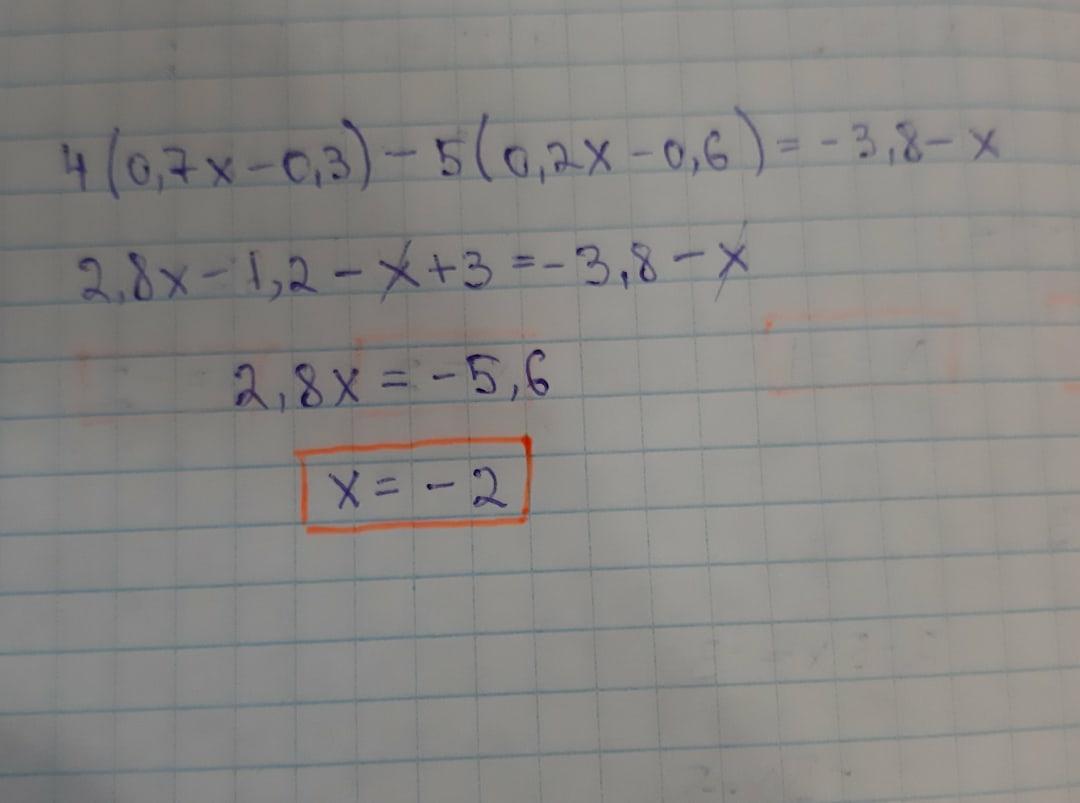 4(0,7x-0,3)-5(0,2x-0,6)=-3,8-x
2,8x-1,2-x+3=-3,8-x
2,8x=-5,6
x=-2